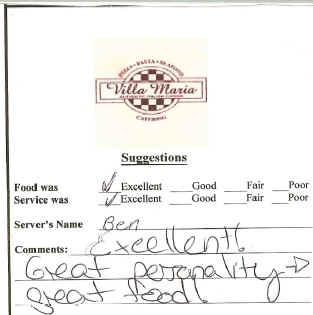 PIZZA • PASTA • SEAFOOD
Villa Maria
CATERING
Suggestions
Food was ✓ Excellent ____ Good ____ Fair ____ Poor
Service was ✓ Excellent ____ Good ____ Fair ____ Poor
Server's Name Ben
Comments: Excellent!
Great personality →
great food!